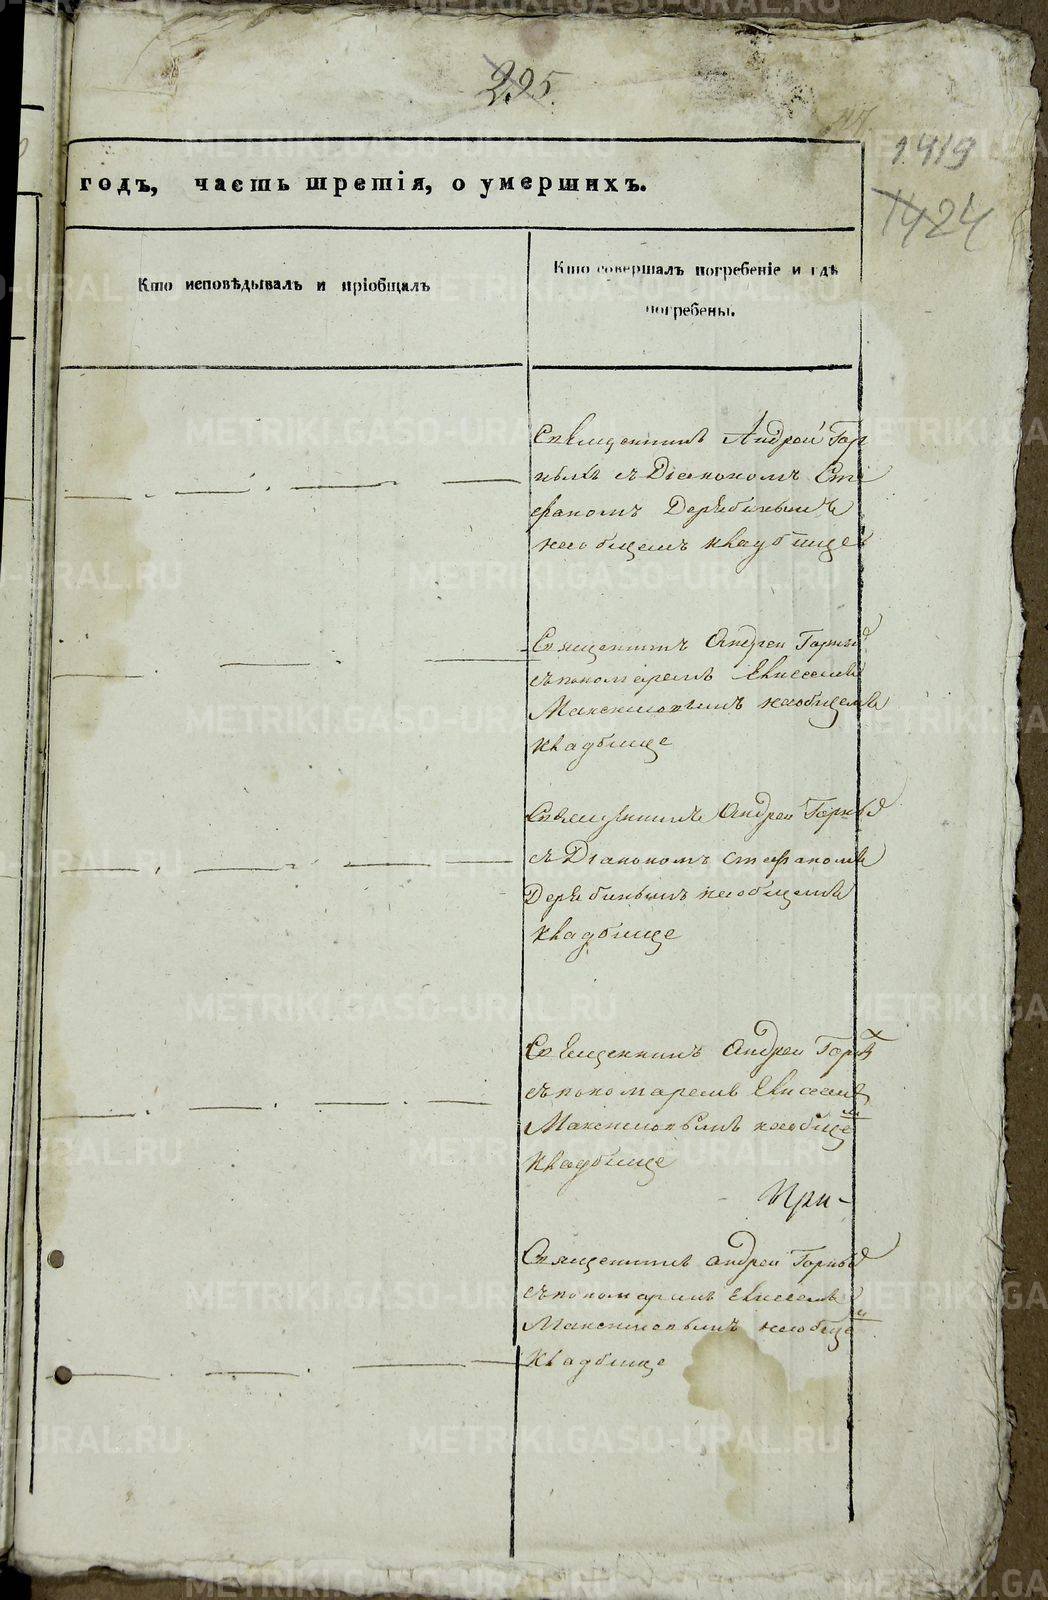 295.
1419
1424
годъ, часть третія, о умершихъ.
Кто исповѣдывалъ и пріобщалъ
Кто совершалъ погребеніе и гдѣ
погребены.
Священникъ Андрей Гор
ныхъ съ Діакономъ Сте
фаномъ Дерябинымъ
наобщемъ кладбище
Священникъ Андрей Горных
съ пономаремъ Елисеемъ
Максимовымъ наобщемъ
кладбище
Священникъ Андрей Горных
съ Діакономъ Стефаномъ
Дерябинымъ наобщемъ
кладбище
Священникъ Андрей Горных
съ пономаремъ Елисеем
Максимовымъ наобщем
кладбище
При-
Священникъ Андрей Горных
съ пономаремъ Елисеемъ
Максимовымъ наобщем
кладбище
METRIKI.GASO-URAL.RU